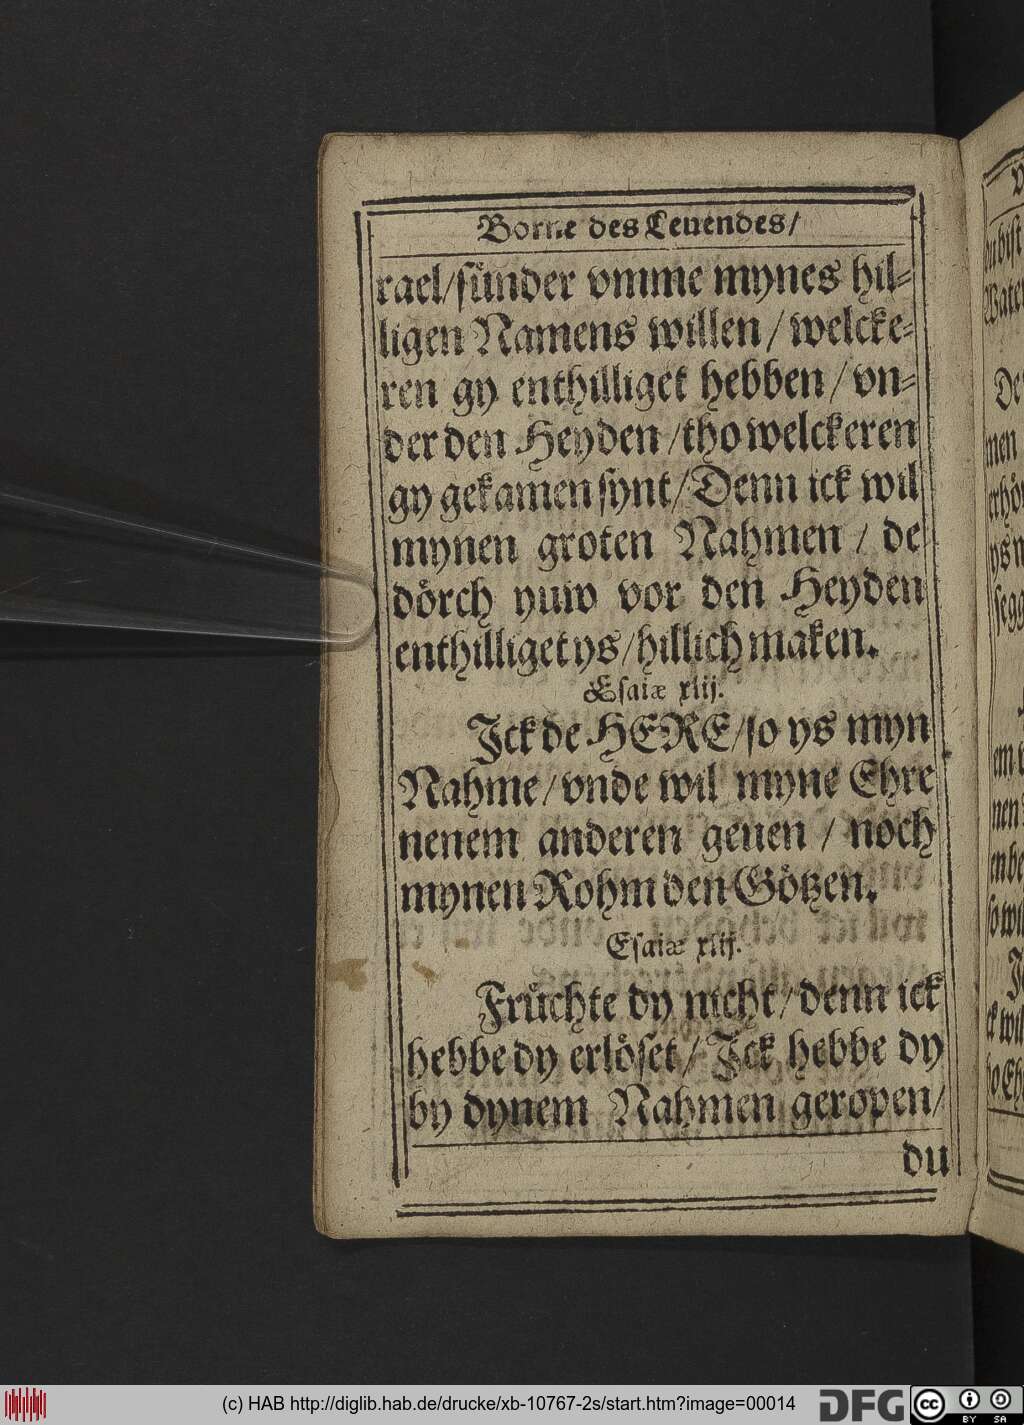 Borne des Leuendes/
rael/sünder vmme mynes hil⸗
ligen Namens willen/welcke⸗
ren gy enthilliget hebben/vn⸗
der den Heyden/tho welckeren
gy gekamen synt/Denn ick wil
mynen groten Nahmen/de
dörch yuw vor den Heyden
enthilliget ys/hillich maken.
Esaiæ xlij.
Jck de HERE/so ys myn
Nahme/vnde wil myne Ehre
nenem anderen geuen/noch
mynen Rohm den Götzen.
Esaiæ xliij.
Früchte dy nicht/denn ick
hebbe dy erlöset/Jck hebbe dy
by dynem Nahmen geropen/
du
(c) HAB http://diglib.hab.de/drucke/xb-10767-2s/start.htm?image=00014
DFG
cc
BY SA